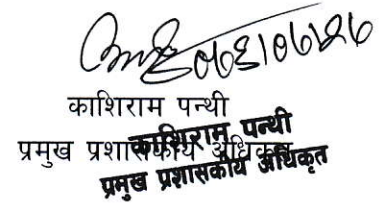 काशिराम पन्थी
प्रमुख प्रशासकीय अधिकृत
काशिराम पन्थी
प्रमुख प्रशासकीय अधिकृत